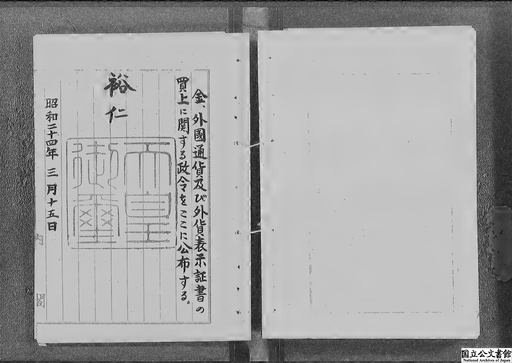 金、外國通貨及び外貨表示証書の
買上に関する政令をここに公布する。
裕仁
天皇
御璽
昭和二十四年 三月十五日
国立公文書館
National Archives of Japan